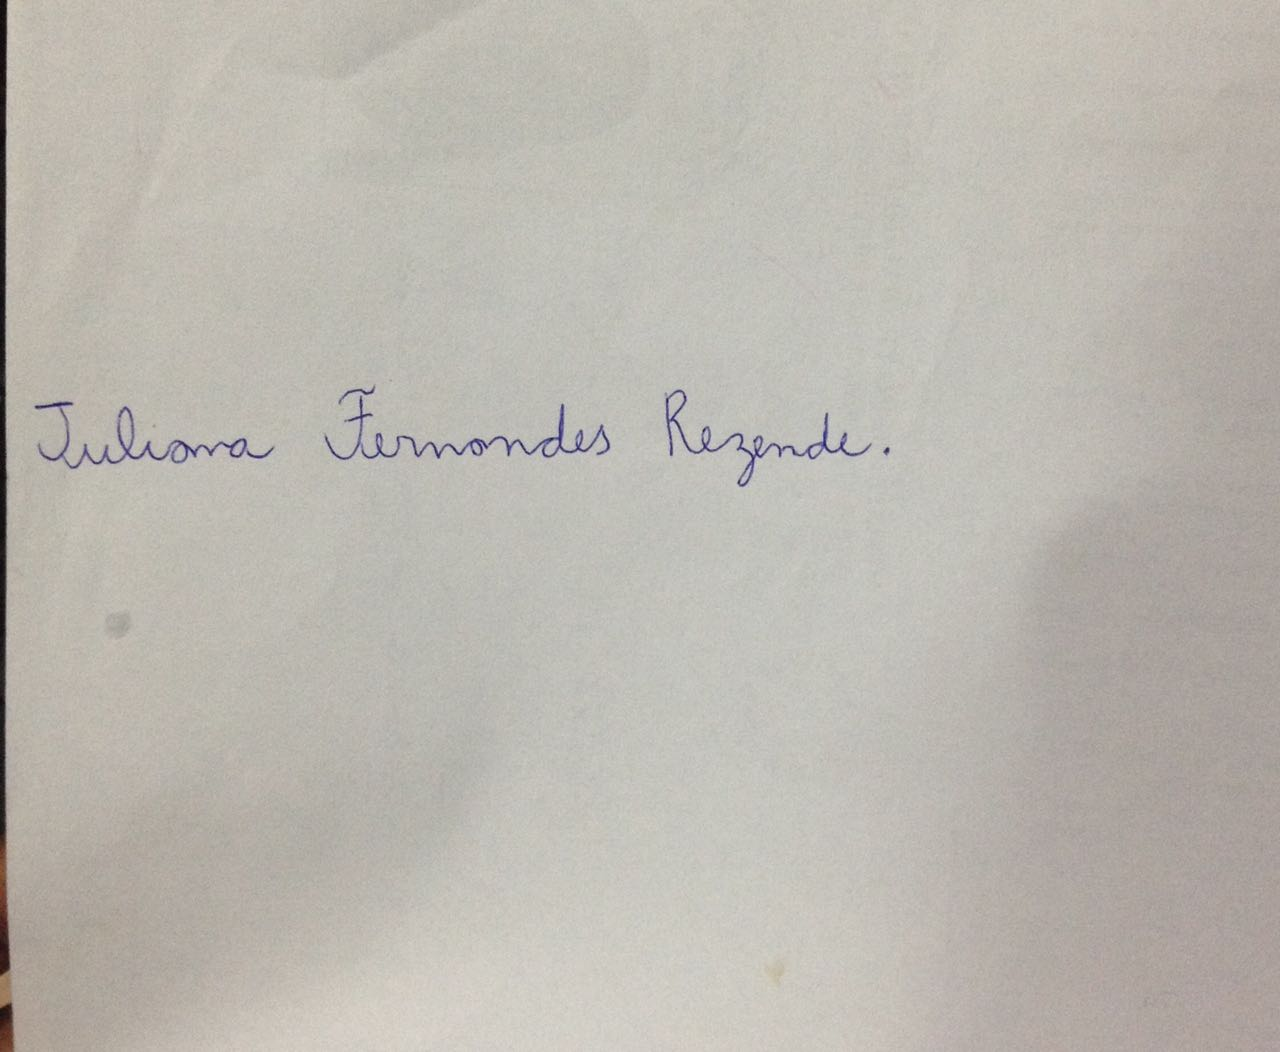 Juliana Fernandes Rezende.